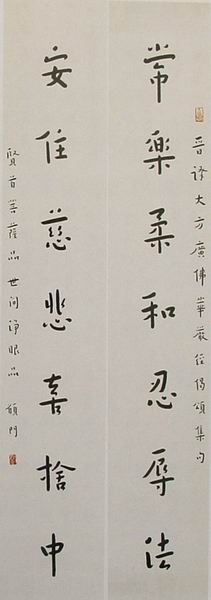 晉譯大方廣佛華嚴經偈頌集句
常樂柔和忍辱法
安住慈悲喜捨中
賢首菩薩品 世間淨眼品 願門